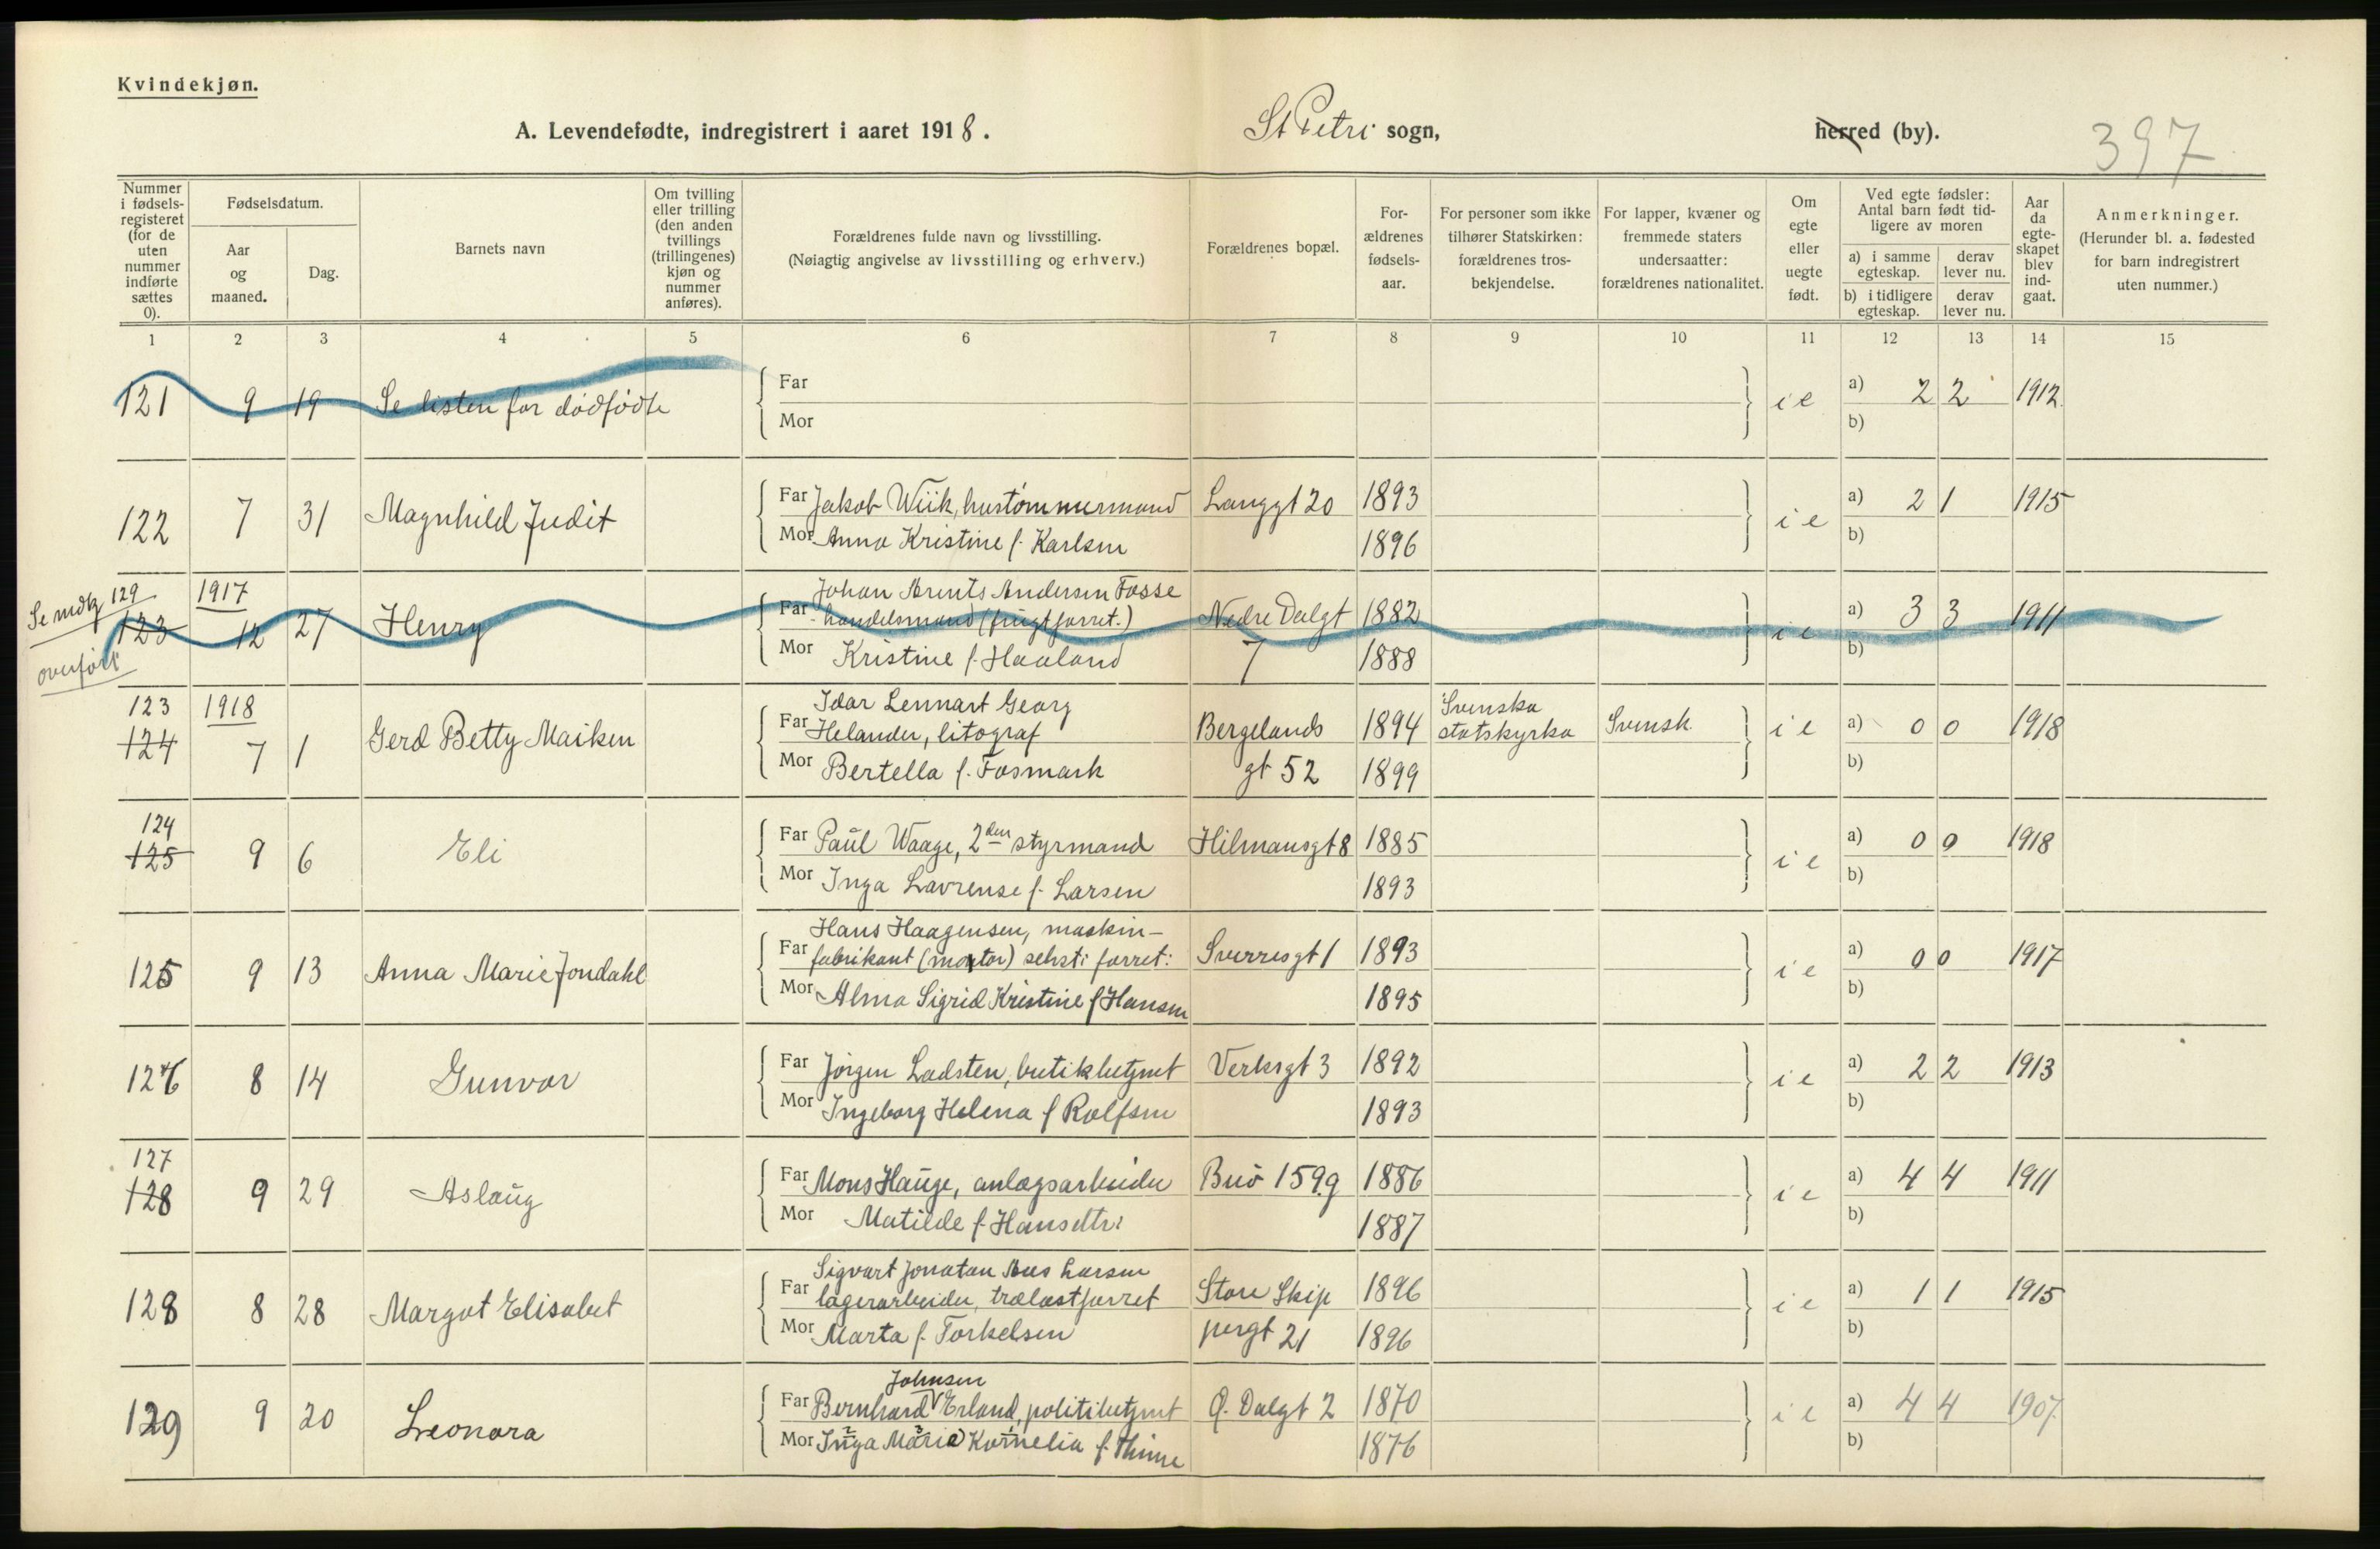 Kvindekjøn.
A. Levendefødte, indregistrert i aaret 1918. St Petri sogn, herred (by). 397
Nummer i fødsels-registeret (for de uten nummer indførte sættes 0).
Fødselsdatum.
Aar og maaned.
Dag.
Barnets navn
Om tvilling eller trilling (den anden tvillings (trillingenes) kjøn og nummer anføres).
Forældrenes fulde navn og livsstilling.
(Nøiagtig angivelse av livsstilling og erhverv.)
Forældrenes bopæl.
For-ældrenes fødsels-aar.
For personer som ikke tilhører Statskirken: forældrenes tros-bekjendelse.
For lapper, kvæner og fremmede staters undersaatter: forældrenes nationalitet.
Om egte eller uegte født.
Ved egte fødsler: Antal barn født tid-ligere av moren
a) i samme egteskap. derav lever nu.
b) i tidligere egteskap. derav lever nu.
Aar da egte-skapet blev ind-gaat.
Anmerkninger.
(Herunder bl. a. fødested for barn indregistrert uten nummer.)
1 2 3 4 5 6 7 8 9 10 11 12 13 14 15
121 9 19 Se listen for dødfødte Far i e a) 2 2 1912
Mor b)
122 7 31 Magnhild Judit Far Jakob Wiik, hustømmermand Langgt 20 1893 i e a) 2 1 1915
Mor Anna Kristine f. Karlsen 1896 b)
Se mdk 129
overført
1917 Johan Arents Andersen Fosse
123 12 27 Henry Far handelsmand (frugtforret.) Nedre Dalgt 1882 i e a) 3 3 1911
Mor Kristine f. Haaland 7 1888 b)
123 1918 Idar Lennart Georg Svenska
124 7 1 Gerd Betty Maiken Far Helander, litograf Bergelands 1894 statskyrka Svensk. i e a) 0 0 1918
Mor Bertella f. Fosmark gt 52 1899 b)
124
125 9 6 Eli Far Paul Waage, 2den styrmand Hilmansgt 8 1885 i e a) 0 0 1918
Mor Inga Lavrense f. Larsen 1893 b)
Hans Haagensen, maskin-
125 9 13 Anna Marie Jondahl Far fabrikant (montør) selvst: forret: Sverresgt 1 1893 i e a) 0 0 1917
Mor Alma Sigrid Kristine f Hansen 1895 b)
126 8 14 Gunvor Far Jørgen Ladsten, butikbetjent Verksgt 3 1892 i e a) 2 2 1913
Mor Ingeborg Helena f Rolfsen 1893 b)
127
128 9 29 Aslaug Far Mons Hauge, anlægsarbeider Buø 159g 1886 i e a) 4 4 1911
Mor Matilde f. Hansdtr: 1887 b)
Sigvart Jonatan Aus Larsen
128 8 28 Margot Elisabet Far lagerarbeider, trælastforret Store Skip 1896 i e a) 1 1 1915
Mor Marta f. Torkelsen pergt 21 1896 b)
Johnsen
129 9 20 Leonora Far Bernhard Erland, politibetjent Ø. Dalgt 2 1870 i e a) 4 4 1907
Mor Inga Maria Kornelia f. Thime 1876 b)